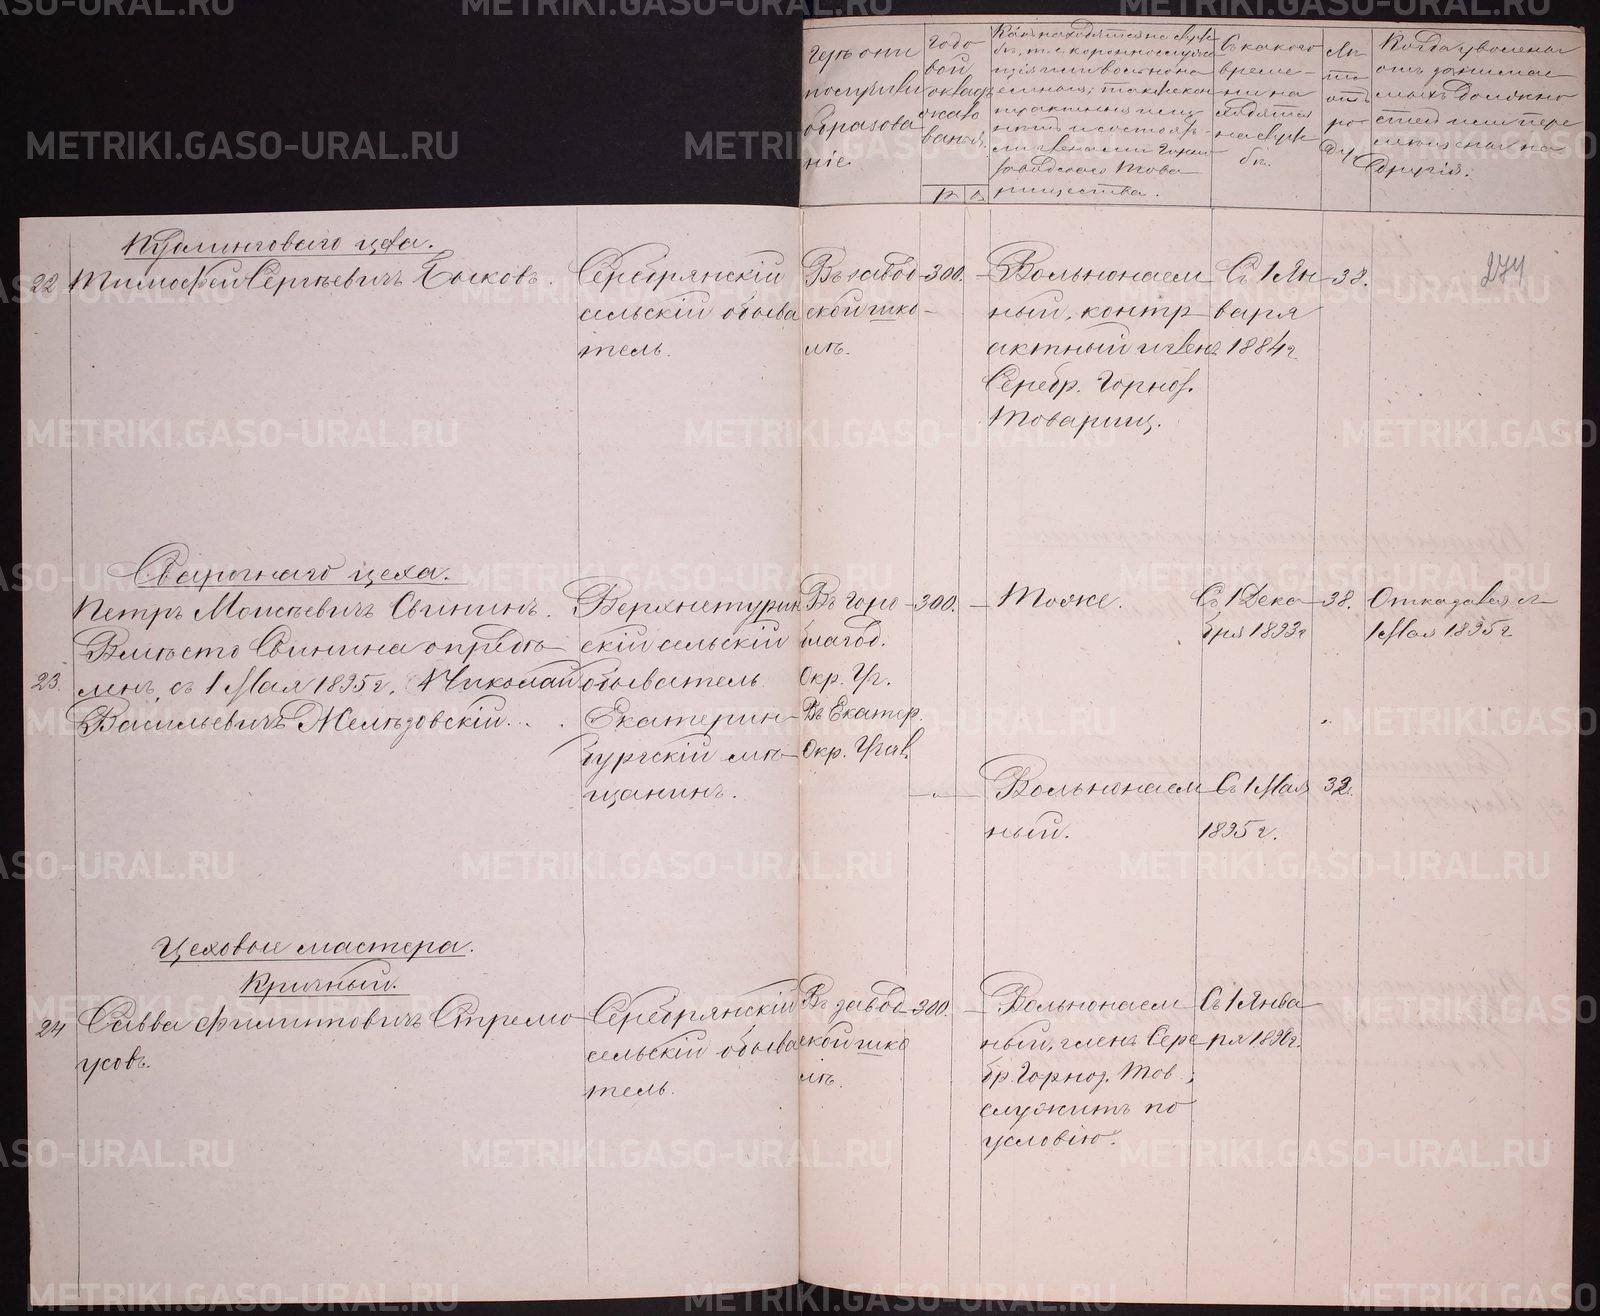 Гдѣ они
получили
образова
ніе.
Годо
вой
окладъ
жало
ванья.
р. к.
Какъ находятся на служ
бѣ, т. е. короннослужа
щіе или вольнона
емные; также кон
трактные или
нѣтъ и состоятъ
ли членами Горно
заводскаго Това
рищества.
Съ какого
време-
ни на
ходятся
на служ
бѣ.
Лѣ
та
отъ
ро
ду.
Когда уволены
отъ занимае
мыхъ должно
стей или пере
мѣщены на
другія.
274
Пудлинговаго цеха.
22 Тимофей Сергѣевичъ Быковъ.
Серебрянскій
сельскій обыва
тель.
Въ завод
ской шко-
лѣ.
300. -
Вольнонаем
ный, контр
актный членъ
Серебр. Горноз.
Товарищ.
Съ 1 Ян
варя
1884 г.
38.
Сварочнаго цеха.
Петръ Моисѣевичъ Свининъ.
Вмѣсто Свинина опредѣ
23. ленъ, съ 1 Мая 1895 г. Николай
Васильевичъ Желѣзовскій.
Верхнетурин
скій сельскій
обыватель.
Екатерин-
бургскій мѣ-
щанинъ.
Въ Горо
благод.
Окр. Уч.
Въ Екатер.
Окр. Учил.
300. -
Тоже.
Съ 1 Дека
бря 1893 г
38.
Отказался съ
1 Мая 1895 г
Вольнонаем
ный.
Съ 1 Мая
1895 г.
32.
Цеховые мастера.
Кричный.
24 Савва Филипповичъ Стремо
усовъ.
Серебрянскій
сельскій обыва
тель.
Въ завод
ской шко
лѣ.
300. -
Вольнонаем
ный, членъ Сере
бр. Горноз. Тов.,
служитъ по
условію.
Съ 1 Янва
ря 1890 г.
METRIKI.GASO-URAL.RU